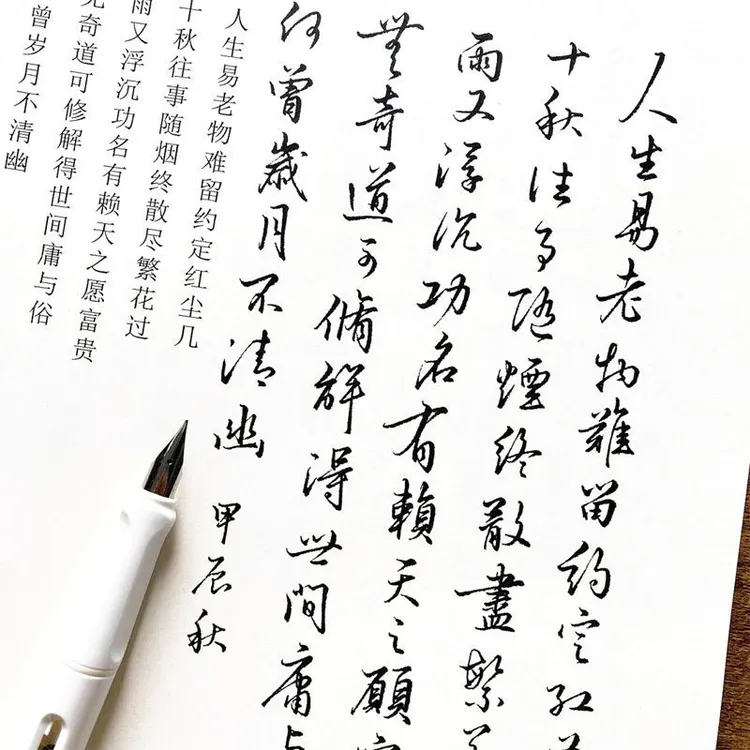 人生易老物難留約定紅
十秋往事隨煙終散盡繁
雨又浮沉功名有賴天之願
無奇道可脩解得世間庸与
何曾歲月不清幽
甲辰秋
人生易老物难留约定红尘几
十秋往事随烟终散尽繁花过
雨又浮沉功名有赖天之愿富贵
无奇道可修解得世间庸与俗
曾岁月不清幽